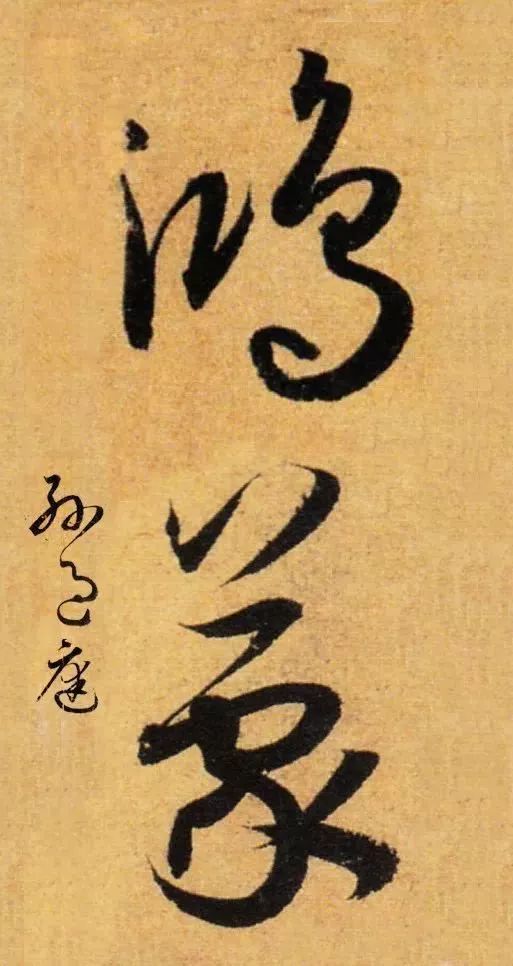 鸿蒙
孙过庭